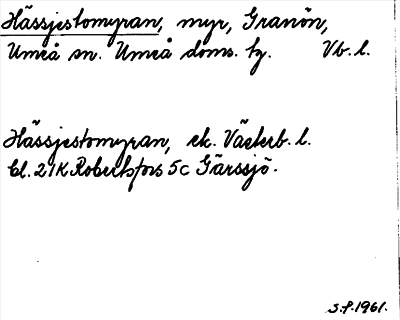 Hässjestomyran, myr, Granön,
Umeå sn. Umeå doms. tg. Vb. l.
Hässjestomyran, ek. Västerb. l.
bl. 21K Robertsfors 5c Gärssjö.
S.f. 1961.